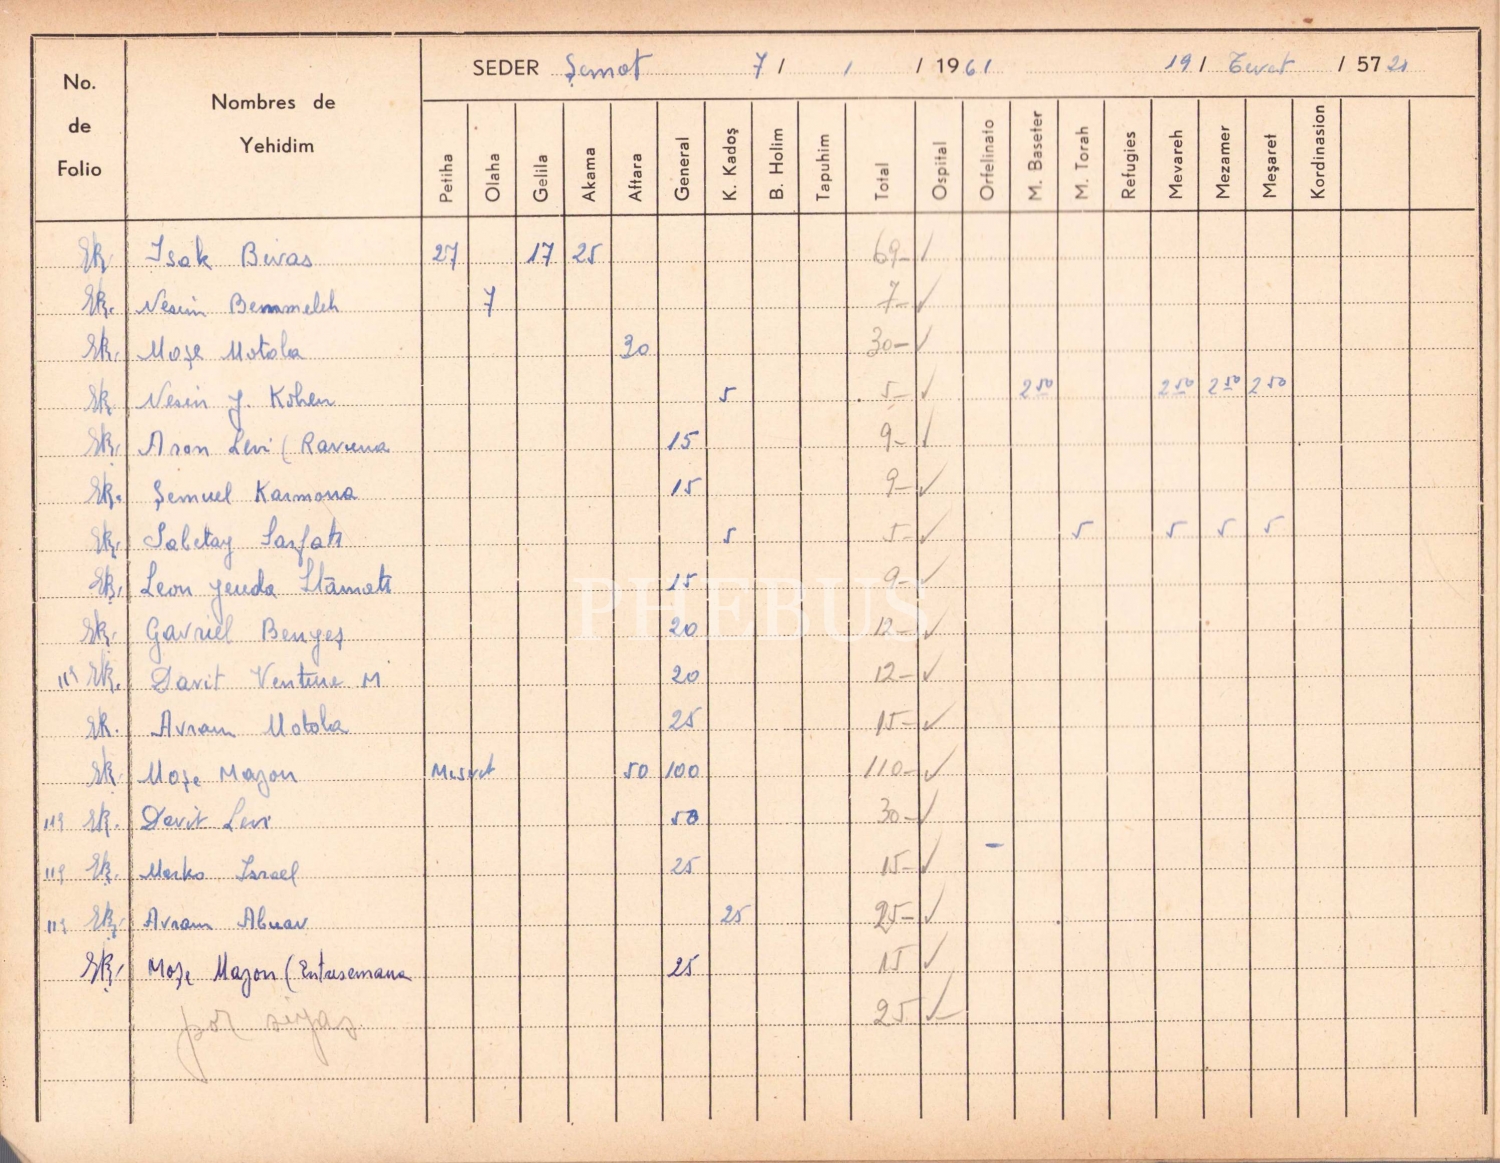 No. de Folio
Nombres de Yehidim
SEDER Şemot 7 / 1 / 1961 19 / Tevet / 5721
Petiha Olaha Gelila Akama Aftara General K. Kadoş B. Holim Tapuhim Total Ospital Orfelinato M. Baseter M. Torah Refugies Mevareh Mezamer Meşaret Kordinasion
Isak Bivas 27 17 25 69-
Nesim Bemmeleh 7 7-
Moşe Motola 30 30-
Nesim J. Kohen 5 5- 2 50 2 50 2 50 2 50
Aron Levi ( Ravuna 15 9-
Şemuel Karmona 15 9-
Sabetay Sarfati 5 5- 5 5 5 5
Leon Yeuda Stamati 15 9-
Gavriel Benyeş 20 12-
119 Davit Venture M 20 12-
Avram Motola 25 15-
Moşe Mazon 50 100 110-
119 Davit Levi 50 30-
119 Marko Israel 25 15-
119 Avram Abuav 25 25-
Moşe Mazon ( Entresemana 25 15
por siyas 25
PHEBUS